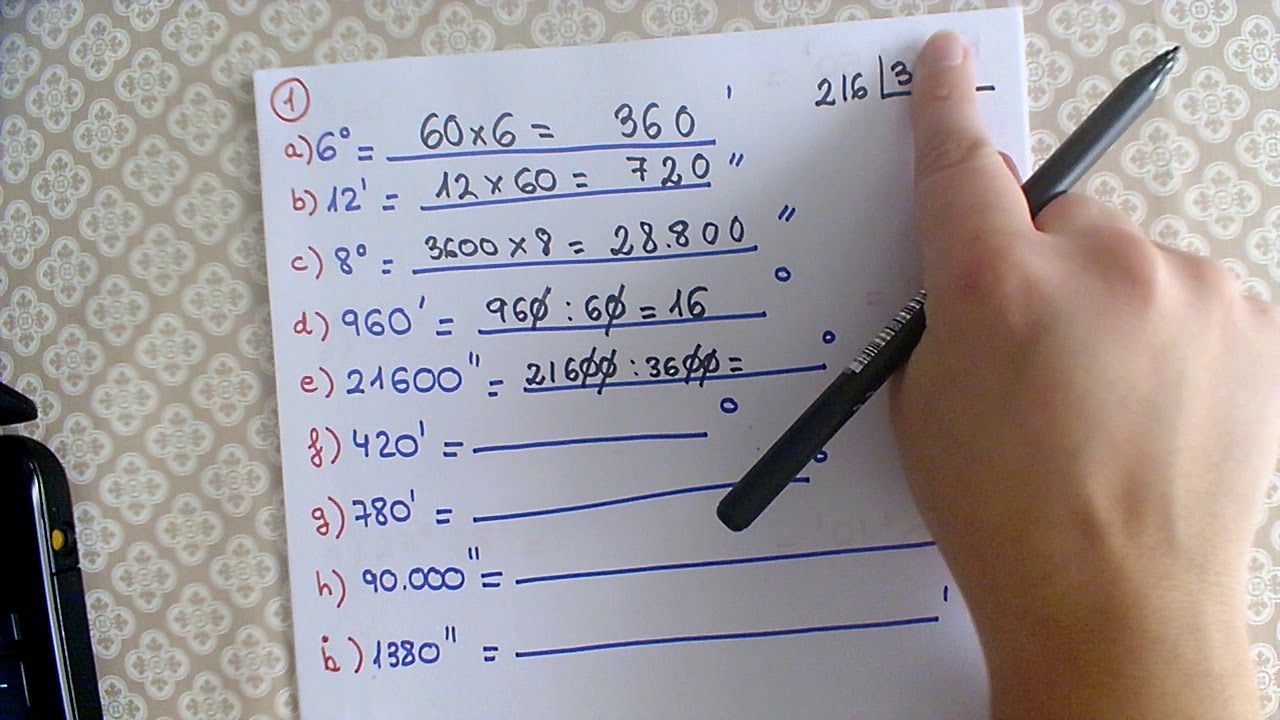 1
216 3
a) 6° = 60 x 6 = 360 '
b) 12' = 12 x 60 = 720 "
c) 8° = 3600 x 8 = 28.800 "
d) 960' = 960 : 60 = 16 °
e) 21600" = 21600 : 3600 = °
f) 420' = °
g) 780' = °
h) 90.000" =
i) 1380" = '